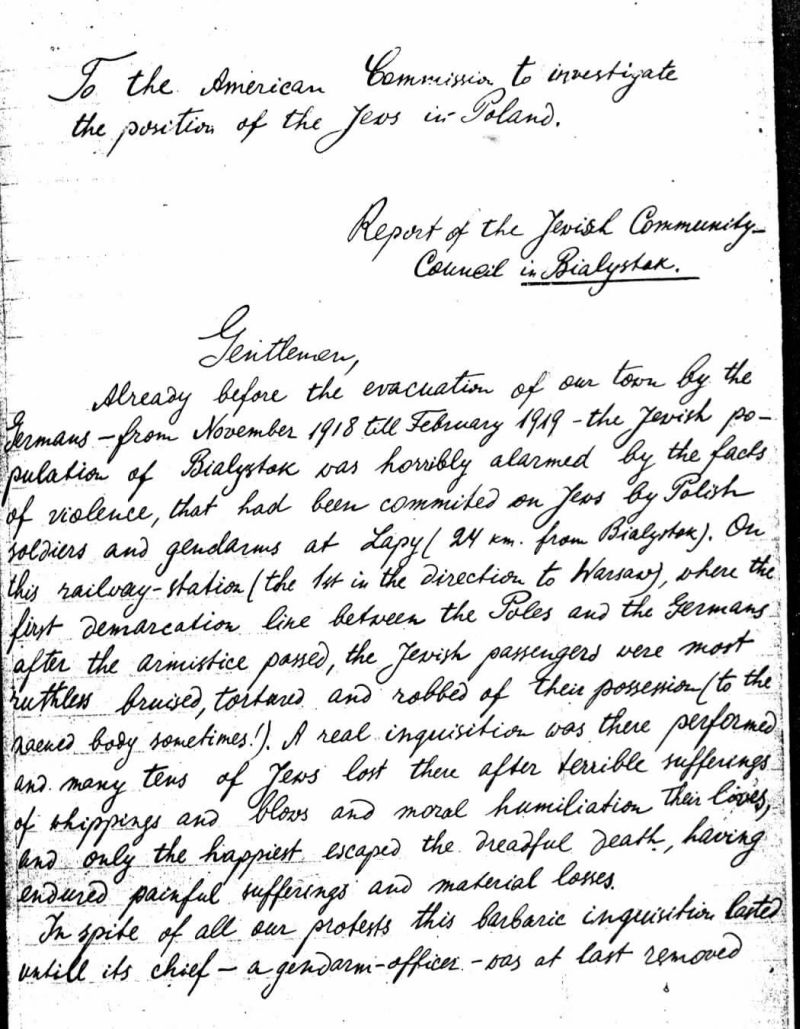 To the American Commission to investigate
the position of the Jews in Poland.
Report of the Jewish Community-
Council in Bialystok.
Gentlemen,
Already before the evacuation of our town by the
Germans – from November 1918 till February 1919 – the Jewish po-
pulation of Bialystok was horribly alarmed by the facts
of violence, that had been commited on Jews by Polish
soldiers and gendarms at Lapy ( 24 km. from Bialystok). On
this railway-station (the 1st in the direction to Warsaw), where the
first demarcation line between the Poles and the Germans
after the armistice passed, the Jewish passengers were most
ruthless bruised, tortured and robbed of their possession (to the
naened body sometimes!). A real inquisition was there performed
and many tens of Jews lost there after terrible sufferings
of whippings and blows and moral humiliation their lives,
and only the happiest escaped the dreadful death, having
endured painful sufferings and material losses.
In spite of all our protests this barbaric inquisition lasted
untill its chief – a gendarm-officer – was at last removed